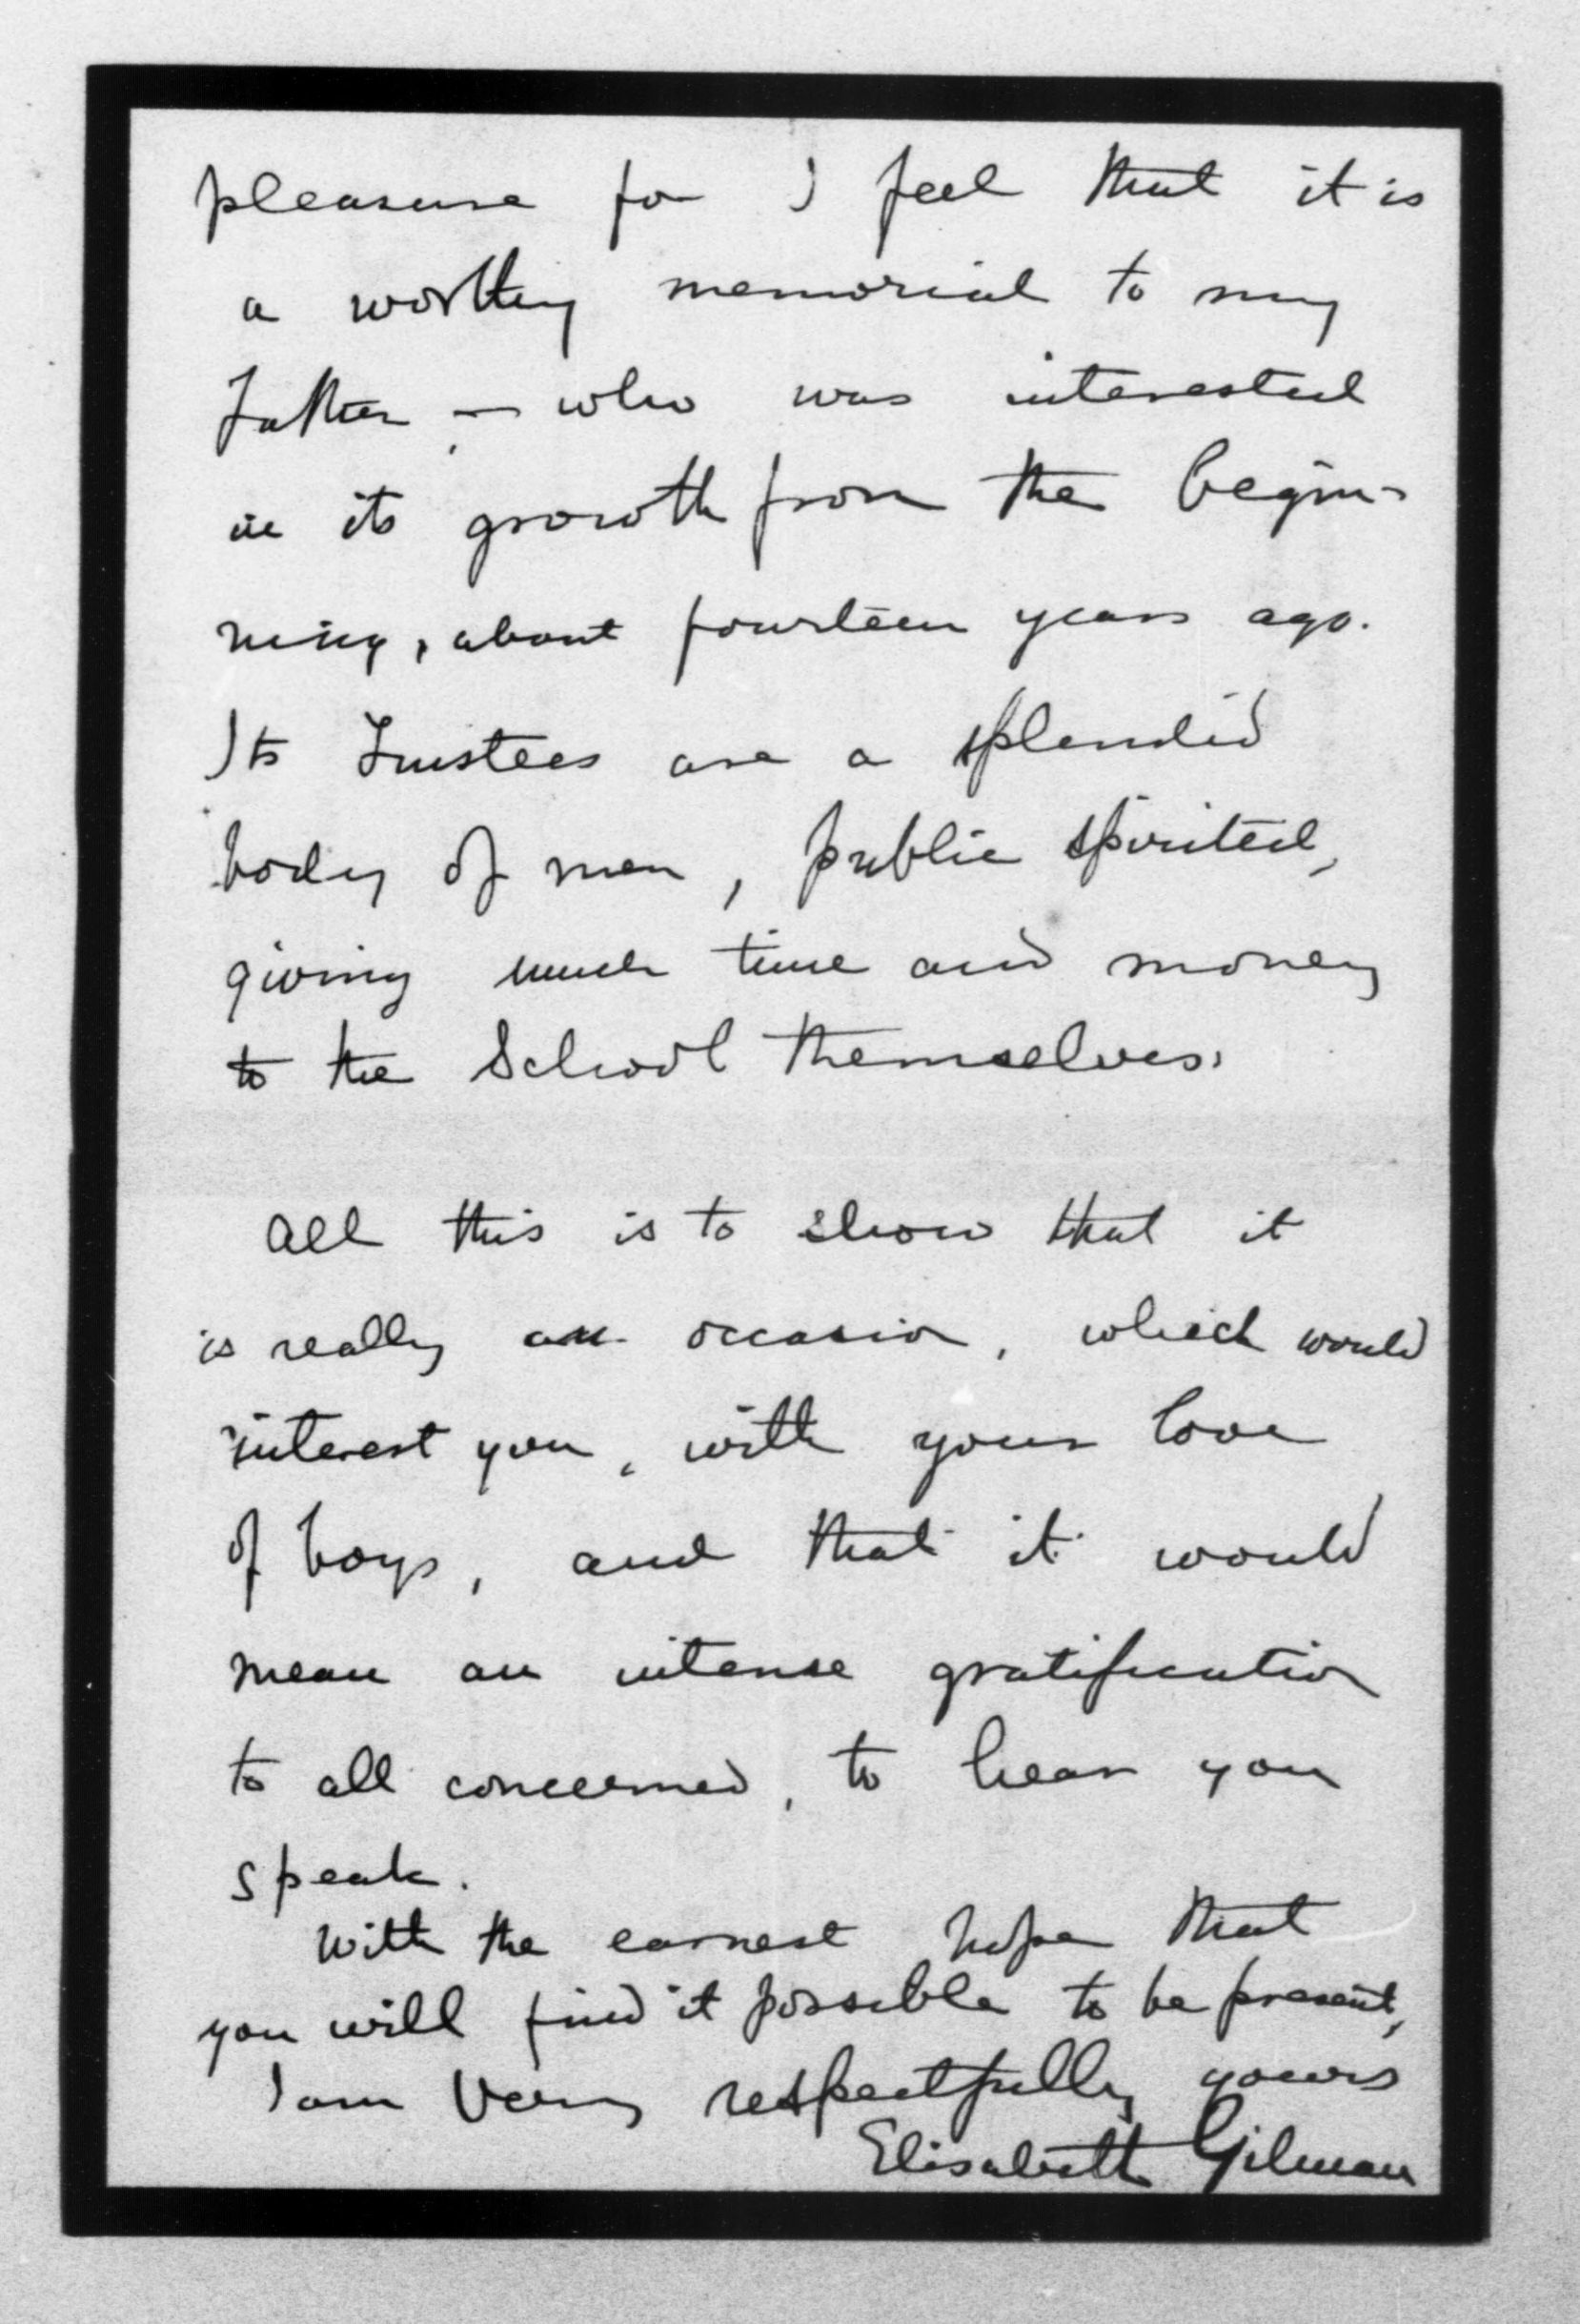 pleasure for I feel that it is
a worthy memorial to my
Father — who was interested
in its growth from the begin-
ning, about fourteen years ago.
Its Trustees are a splendid
body of men, public spirited,
giving much time and money
to the School themselves.
All this is to show that it
is really an occasion, which would
interest you, with your love
of boys, and that it would
mean an intense gratification
to all concerned, to hear you
speak.
With the earnest hope that
you will find it possible to be present,
I am Very respectfully yours
Elisabeth Gilman